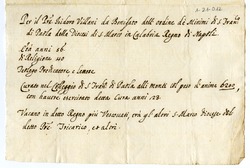 Per il Prē Isidoro Villani da Bonifato dell'ordine de Minimi di S. Franc.º
di Paola della Diocesi di S. Marco in Calabria Regno di Napoli
Età anni
di Religione
Teologo Predicatore e Lettore
Curato nel Collegio di S. Franc.º di Paola alli monti col peso d'anime 6202,
con havere esercitato detta Cura anni 28.
Vacano in detto Regno più Vescovati, trà gli altri S. Marco Diocesi del
detto Prē Tricarico, et altri.